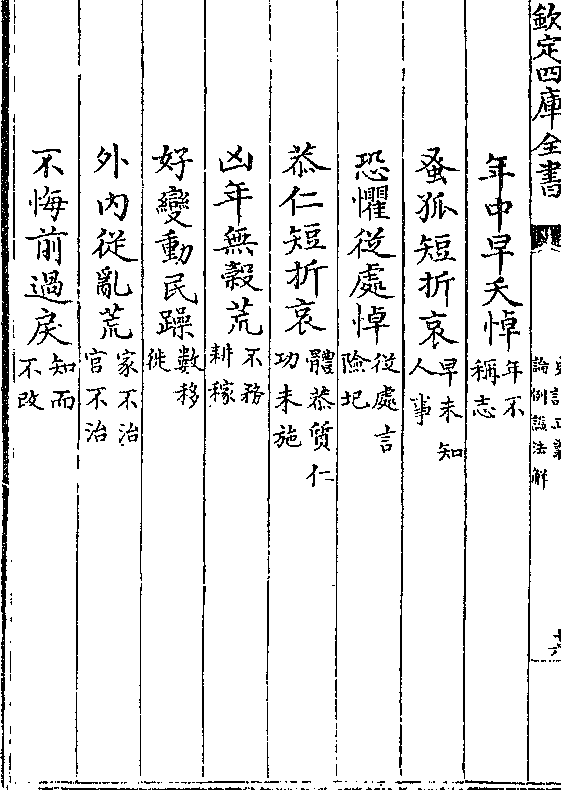 欽定四庫全書
史記正義
論例諡法解
十六
年中早夭悼年不稱志
蚤孤短折哀早未知人事
恐懼從處悼從處言險圮
恭仁短折哀體恭質仁功未施
凶年無糓荒不務耕稼
好變動民躁數移徙
外內從亂荒家不治官不治
不悔前過戾知而不改